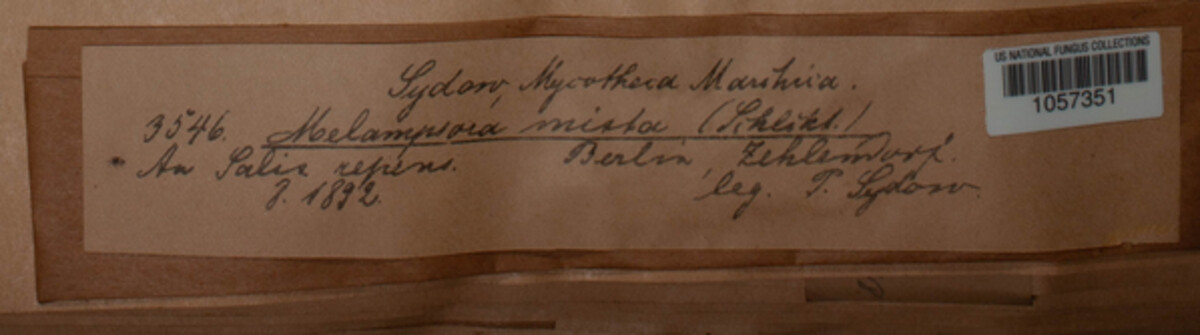 Sydow, Mycotheca Marchica.
3546. Melampsora mixta (Schlcht.)
An Salix repens. Berlin, Zehlendorf.
8. 1892. leg. P. Sydow.
US NATIONAL FUNGUS COLLECTIONS
1057351